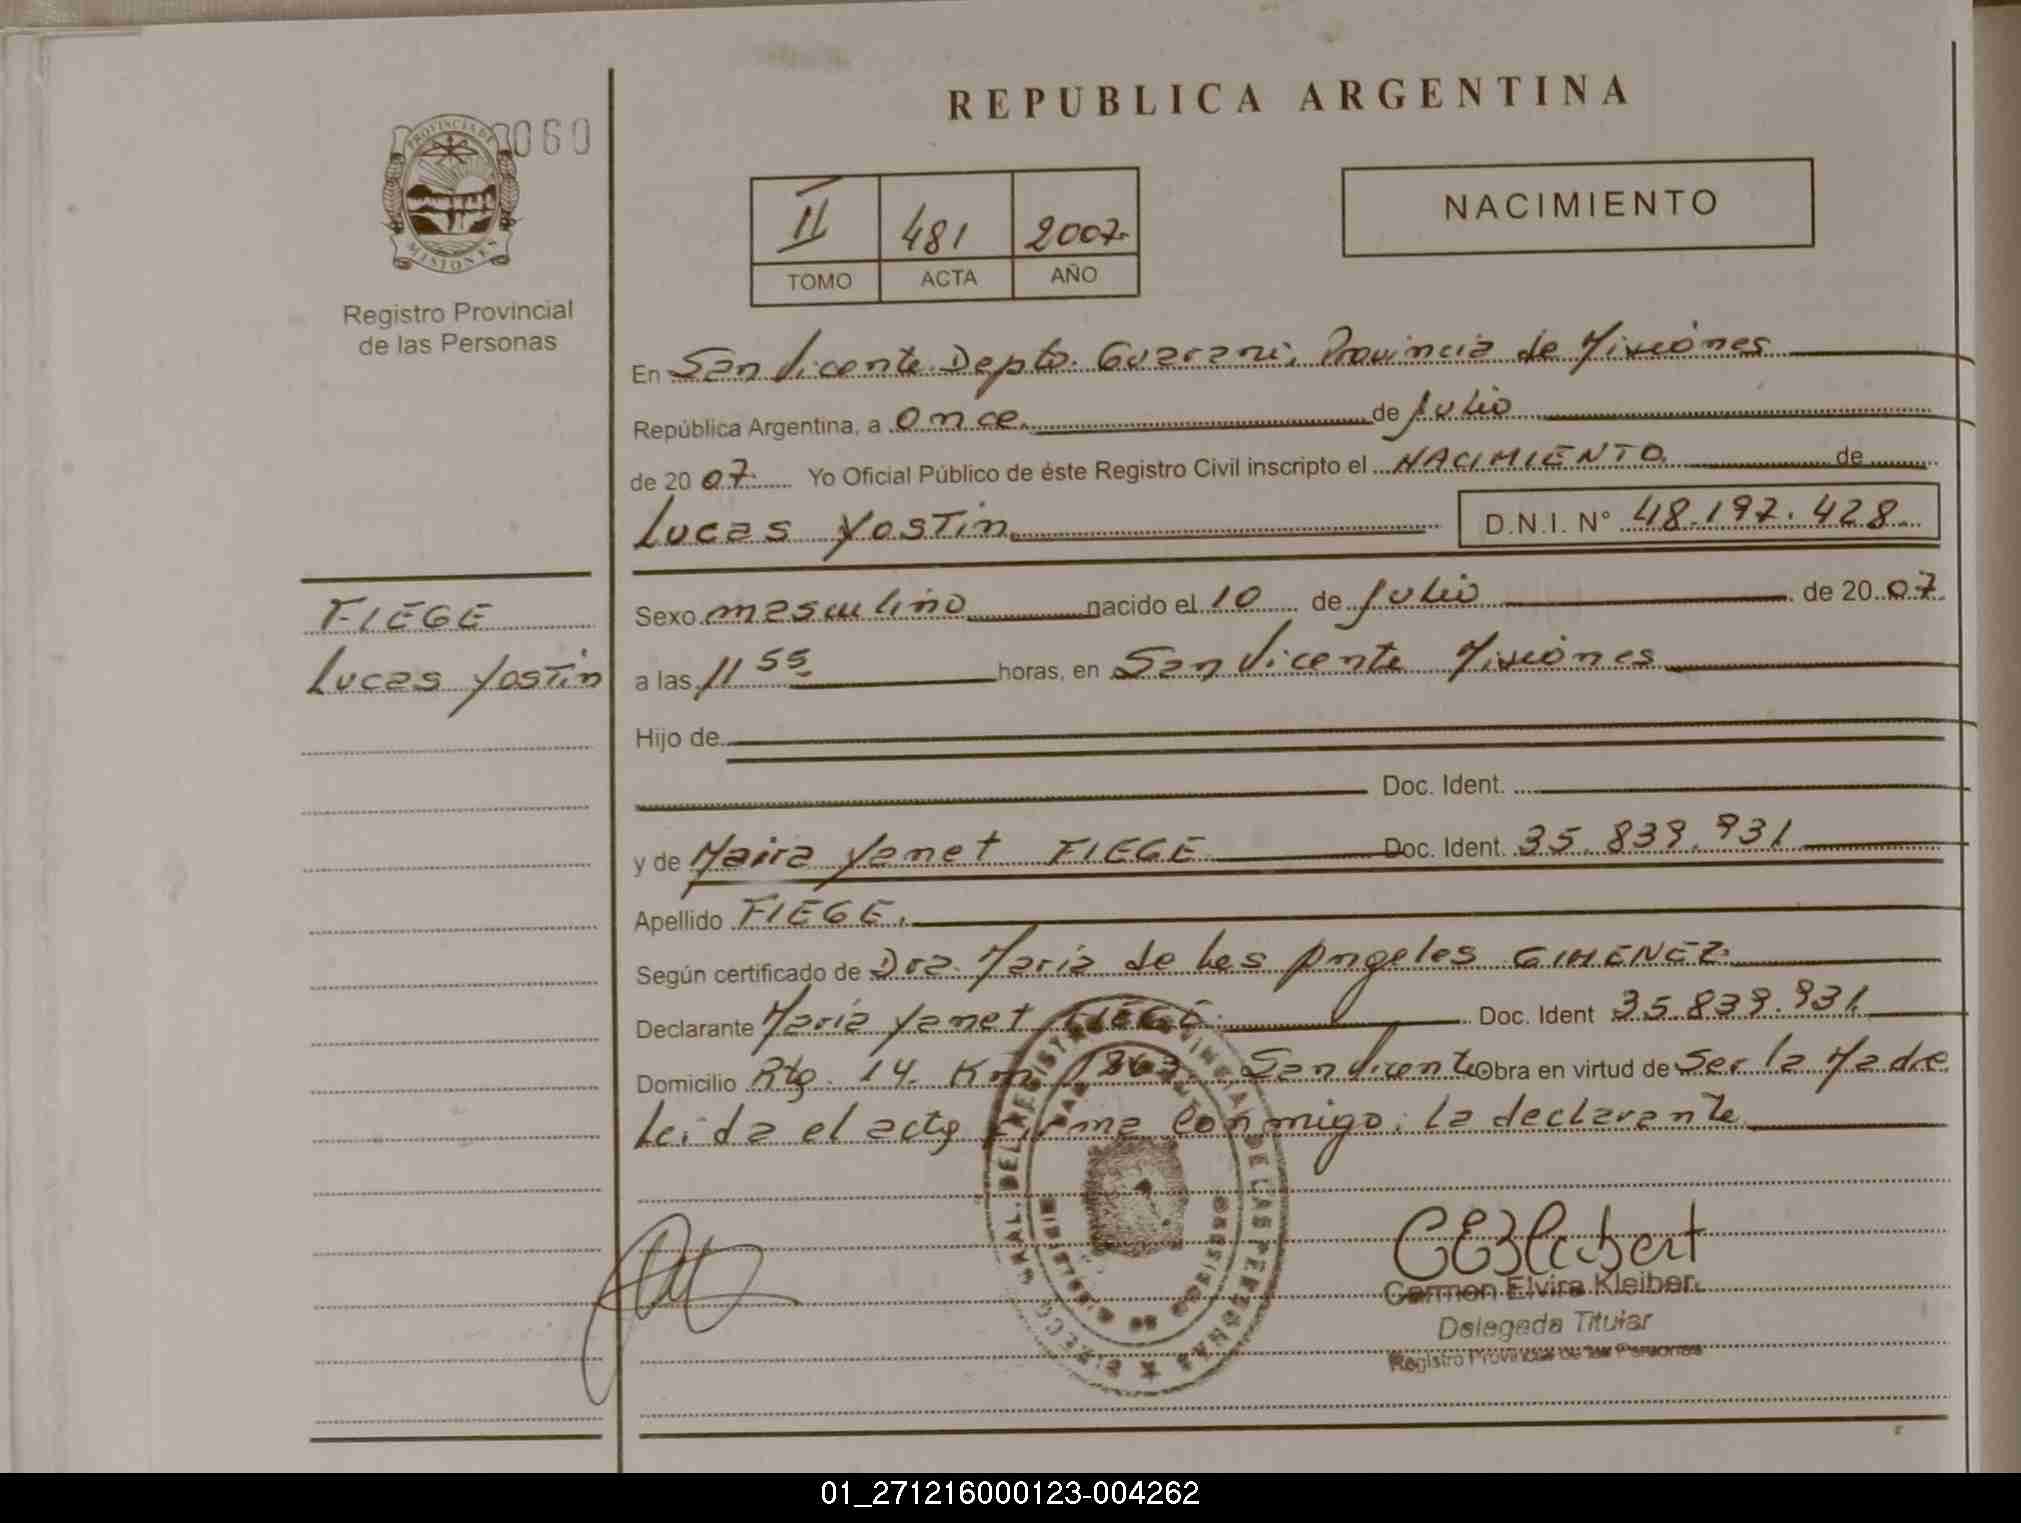 REPUBLICA ARGENTINA
PROVINCIA DE MISIONES
060
Registro Provincial
de las Personas
II 481 2007
TOMO ACTA AÑO
NACIMIENTO
En San Vicente Depto. Guarani, Provincia de Misiónes
República Argentina, a once de Julio
de 2007. Yo Oficial Público de éste Registro Civil inscripto el NACIMIENTO de
Lucas Yostin D.N.I. N° 48.197.428
FIEGE
Lucas Yostin
Sexo masculino nacido el 10 de Julio de 2007
a las 11 55 horas, en San Vicente Misiónes
Hijo de
Doc. Ident.
y de Maira Yanet FIEGE Doc. Ident. 35.839.931
Apellido FIEGE.
Según certificado de Dra. Maria de Los Angeles GIMENEZ
Declarante Maria Yanet FIEGE Doc. Ident 35.839.931
Domicilio Rta. 14. Km 863 San Vicente Obra en virtud de Ser la Madre
Leida el acta firma conmigo: la declarante
Carmen Elvira Kleibert
Delegada Titular
Registro Provincial de las Personas
01_271216000123-004262